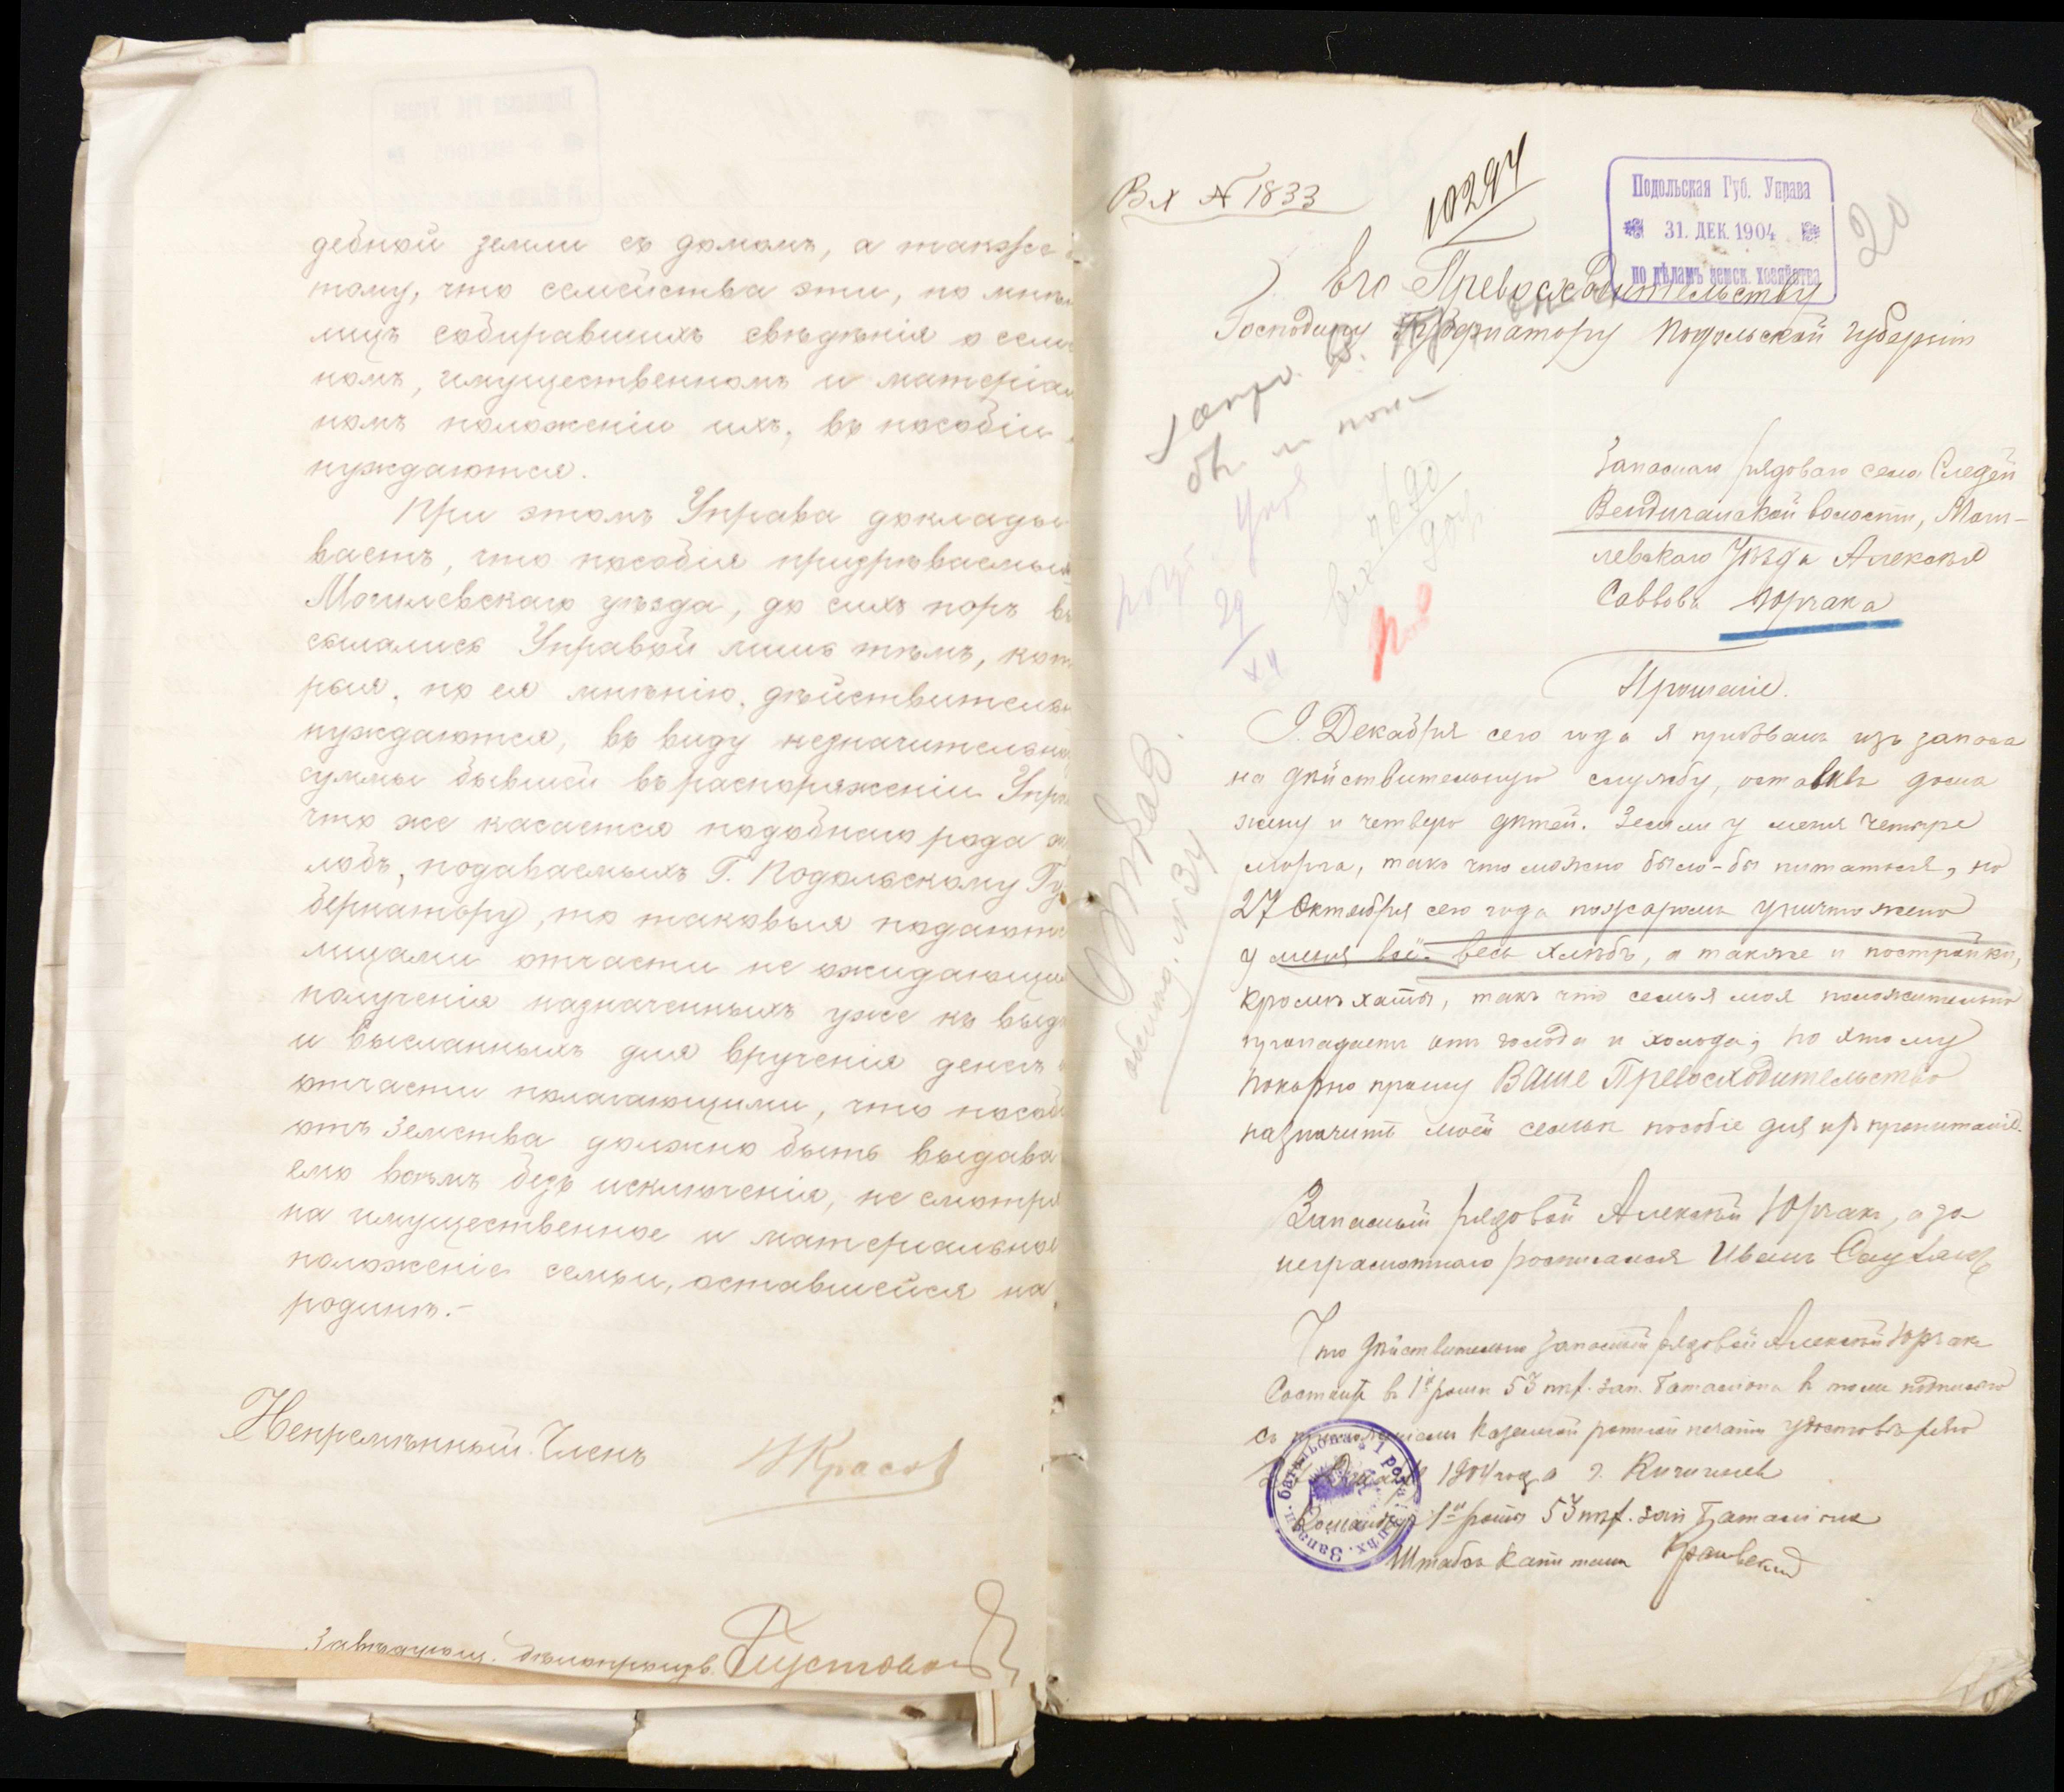 дебной земли съ домомъ, а также
тому, что семейства эти, по мнѣ
лицъ собиравшихъ свѣдѣнія о семе
номъ, имущественномъ и матеріал
номъ положеніи ихъ, въ пособіи
нуждаются.
При этомъ Управа доклады
ваетъ, что пособія призрѣваемымъ
Могилевскаго уѣзда, до сихъ поръ вы
сылались Управой лишь тѣмъ, кото
рыя, по ея мнѣнію, дѣйствительно
нуждаются, въ виду незначительной
суммы бывшей въ распоряженіи Упра
что же касается подобнаго рода жа
лобъ, подаваемыхъ Г. Подольскому Гу
бернатору, то таковыя подаются
лицами отчасти не ожидающими
полученія назначенныхъ уже къ выда
и высланныхъ для врученія денегъ
отчасти полагающими, что пособ
отъ Земства должно быть выдава
емо всѣмъ безъ исключенія, не смотря
на имущественное и матеріальное
положеніе семьи, оставшейся на
родинѣ.-
Непремѣнный Членъ
Завѣдующ. дѣлопроизв.
Вх № 1833
10294
Подольская Губ. Управа
31. ДЕК. 1904
по дѣламъ земск. хозяйства
20
Его Превосходительству
Господину Губернатору Подольской губерніи
Запаснаго рядоваго села Следей
Вендичанской волости, Моги-
левскаго Уѣзда Алексѣя
Саввова Юрчака
Прошеніе.
9. Декабря сего года я призванъ изъ запаса
на дѣйствительную службу, оставивъ дома
жену и четверо дѣтей. Земли у меня четыре
морга, такъ что можно было-бы питаться, но
27 Октября сего года пожаромъ уничтожено
у меня всё весь хлѣбъ, а также и постройки,
кромѣ хаты, такъ что семья моя положительно
пропадаетъ отъ голода и холода, по этому
покорно прошу Ваше Превосходительство
назначить моей семьѣ пособіе для пропитанія.
Запасный рядовой Алексѣй Юрчакъ, а за
неграмотнаго росписался Иванъ
Что дѣйствительно запасный рядовой Алексѣй Юрчакъ
Состоитъ въ 1й ротѣ 53 пѣх. зап. баталіона въ томъ подписью
съ приложеніемъ казенной ротной печати удостовѣряю
Декабря 1904 года г. Кишиневъ
Командиръ 1ой роты 53 пѣх. зап баталіона
Штабсъ Капитанъ